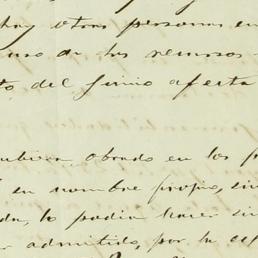 hay otras personas en
uno de los recursos
to del juicio afecta
hubiera obrado en los
en nombre propio, sin
da, lo podia hacer sin
admitido, por la